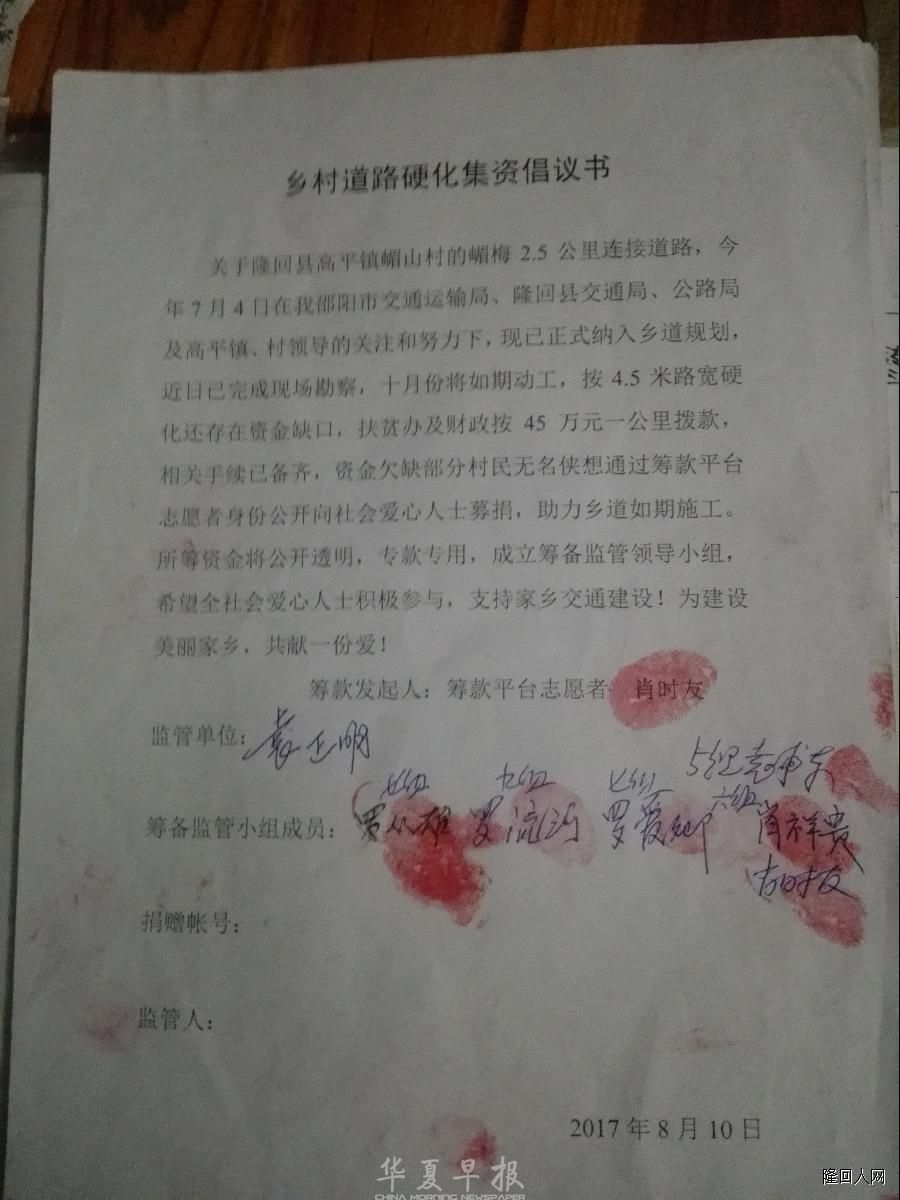 乡村道路硬化集资倡议书
关于隆回县高平镇嵋山村的嵋梅 2.5 公里连接道路，今
年 7 月 4 日在我邵阳市交通运输局、隆回县交通局、公路局
及高平镇、村领导的关注和努力下，现已正式纳入乡道规划，
近日已完成现场勘察，十月份将如期动工，按 4.5 米路宽硬
化还存在资金缺口，扶贫办及财政按 45 万元一公里拨款，
相关手续已备齐，资金欠缺部分村民无名侠想通过筹款平台
志愿者身份公开向社会爱心人士募捐，助力乡道如期施工。
所筹资金将公开透明，专款专用，成立筹备监管领导小组，
希望全社会爱心人士积极参与，支持家乡交通建设！为建设
美丽家乡，共献一份爱！
筹款发起人：筹款平台志愿者 肖时友
监管单位：袁正明
七组 九组 七组 5组
六组
筹备监管小组成员：罗 雄 罗流沙 罗爱卿 肖祥贵
肖时友
捐赠帐号：
监管人：
2017 年 8 月 10 日
华夏早报
CHINA MORNING NEWSPAPER
隆回人网